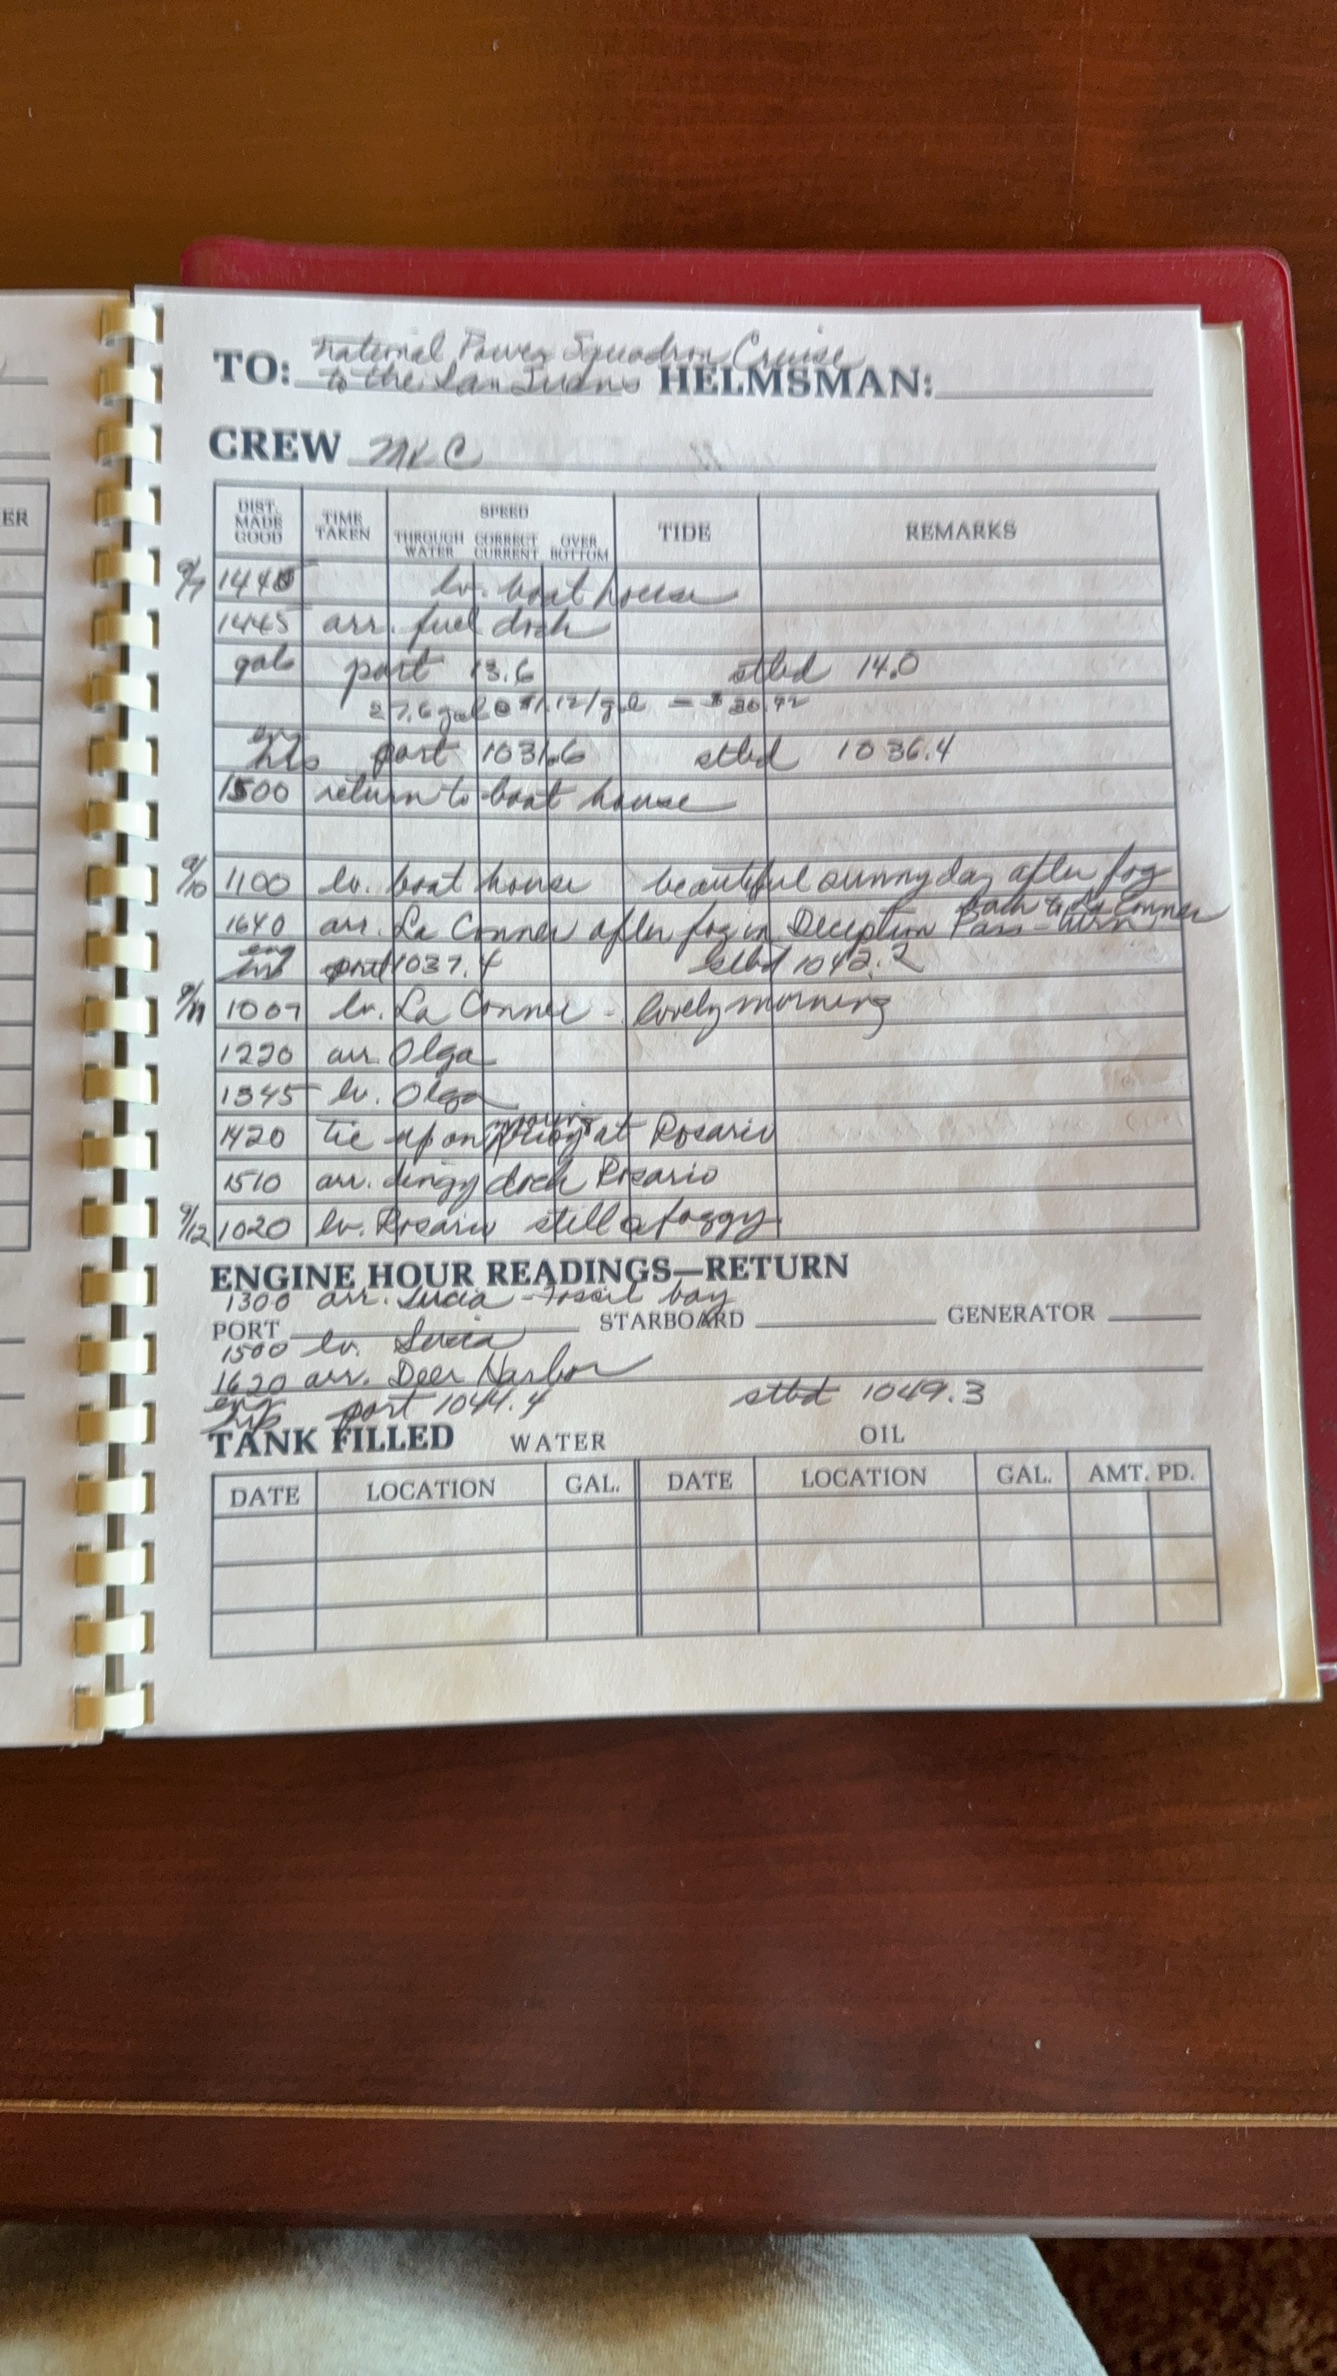 ER
TO: National Power Squadron Cruise
to the San Juans HELMSMAN:
CREW MKC
DIST. MADE GOOD TIME TAKEN SPEED THROUGH WATER CORRECT CURRENT OVER BOTTOM TIDE REMARKS
9/7 1440 lv. boat house
1445 arr. fuel dock
gals port 13.6 stbd 14.0
27.6 gal @ $1.12/gal = $30.92
eng hrs port 1031.6 stbd 1036.4
1500 return to boat house
9/10 1100 lv. boat house beautiful sunny day after fog
1640 arr. La Conner after fog in Deception Pass - turn back to La Conner
eng hrs port 1037.4 stbd 1042.2
9/11 1007 lv. La Conner - lovely morning
1220 arr. Olga
1345 lv. Olga
1420 tie up on mooring at Rosario
1510 arr. dingy dock Rosario
9/12 1020 lv. Rosario still foggy
ENGINE HOUR READINGS—RETURN
1300 arr. Sucia - Fossil bay
PORT STARBOARD GENERATOR
1500 lv. Sucia
1620 arr. Deer Harbor
eng hrs port 1044.4 stbd 1049.3
TANK FILLED WATER OIL
DATE LOCATION GAL. DATE LOCATION GAL. AMT. PD.